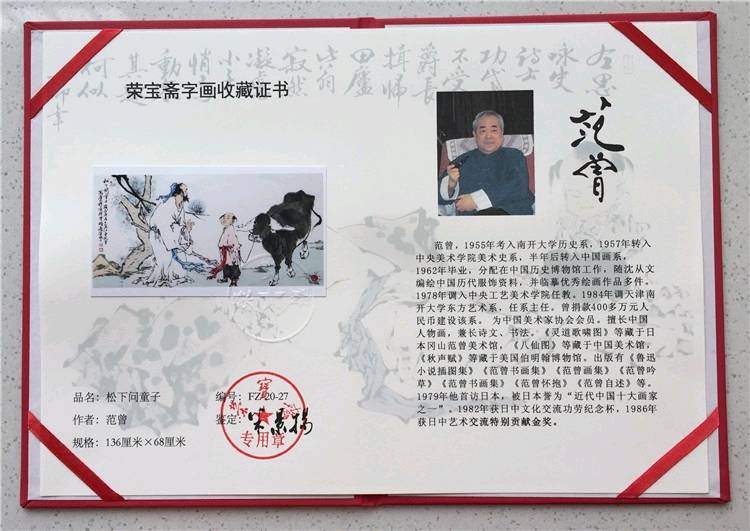 荣宝斋字画收藏证书
品名：松下问童子
作者：范曾
规格：136厘米×68厘米
编号：FZ-20-27
鉴定：
专用章
范曾
范曾，1955年考入南开大学历史系，1957年转入
中央美术学院美术史系，半年后转入中国画系，
1962年毕业，分配在中国历史博物馆工作，随沈从文
编绘中国历代服饰资料，并临摹优秀绘画作品多件。
1978年调入中央工艺美术学院任教。1984年调天津南
开大学东方艺术系，任系主任。曾捐款400多万元人
民币建设该系。 为中国美术家协会会员。擅长中国
人物画，兼长诗文、书法。《灵道歌啸图》等藏于日
本冈山范曾美术馆，《八仙图》等藏于中国美术馆，
《秋声赋》等藏于美国伯明翰博物馆。出版有《鲁迅
小说插图集》《范曾书画集》《范曾画集》《范曾吟
草》《范曾书画集》《范曾怀抱》《范曾自述》等。
1979年他首访日本，被日本誉为“近代中国十大画家
之一”。1982年获日中文化交流功劳纪念杯，1986年
获日中艺术交流特别贡献金奖。